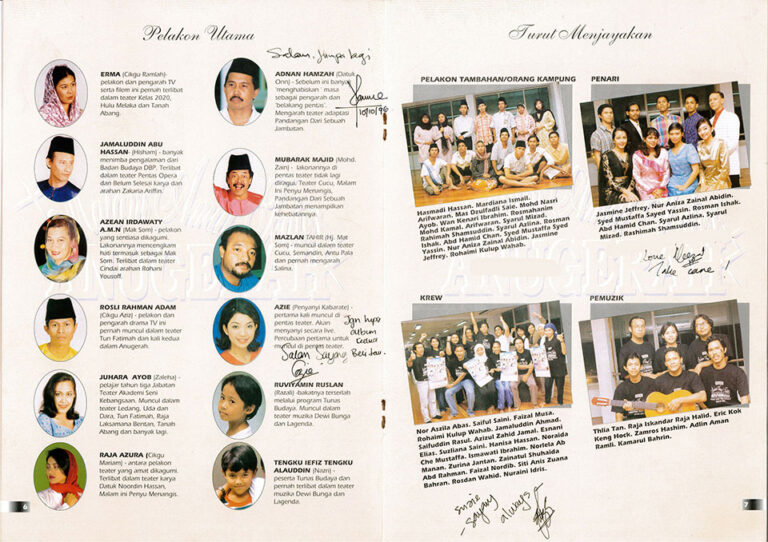 Pelakon Utama
Salam, jumpa lagi
10/10/96
ERMA (Cikgu Ramlah)-
pelakon dan pengarah TV
serta filem ini pernah terlibat
dalam teater Kelas 2020,
Hulu Melaka dan Tanah
Abang.
JAMALUDDIN ABU
HASSAN- (Hisham) - banyak
menimba pengalaman dari
Badan Budaya DBP. Terlibat
dalam teater Pentas Opera
dan Belum Selesai karya dan
arahan Zakaria Ariffin.
AZEAN IRDAWATY
A.M.N (Mak Som) - pelakon
yang sentiasa dikagumi.
Lakonannya mencengkam
hati termasuk sebagai Mak
Som. Terlibat dalam teater
Cindai arahan Rohani
Yousoff.
ROSLI RAHMAN ADAM
(Cikgu Aziz) - pelakon dan
pengarah drama TV ini
pernah muncul dalam teater
Tun Fatimah dan kali kedua
dalam Anugerah.
JUHARA AYOB (Zaleha) -
pelajar tahun tiga Jabatan
Teater Akademi Seni
Kebangsaan. Muncul dalam
teater Ledang, Uda dan
Dara, Tun Fatimah, Raja
Laksmana Bentan, Tanah
Abang dan banyak lagi.
RAJA AZURA (Cikgu
Mariam) - antara pelakon
teater yang amat dikagumi.
Terlibat dalam teater karya
Datuk Noordin Hassan,
Malam ini Penyu Menangis.
ADNAN HAMZAH (Datuk
Onn) - Sebelum ini banyak
'menghabiskan' masa
sebagai pengarah dan
'belakang pentas'.
Mengarah teater adaptasi
Pandangan Dari Sebuah
Jambatan.
MUBARAK MAJID (Mohd.
Zain) - lakonannya di
pentas teater tidak lagi
diragui. Teater Cucu, Malam
Ini Penyu Menangis,
Pandangan Dari Sebuah
Jambatan menampilkan
kehebatannya.
MAZLAN TAHIR (Hj. Mat
Som) - muncul dalam teater
Cucu, Semandin, Antu Pala
dan pernah mengarah
Salina.
AZIE (Penyanyi Kabarate) -
pertama kali muncul di
pentas teater. Akan
menyanyi secara live.
Percubaan pertama untuk
muncul di pentas teater.
Jgn lupa
album
kedua
Salam Sayang
Azie
RUVIYAMIN RUSLAN
(Razali) -bakatnya terserlah
melalui program Tunas
Budaya. Muncul dalam
teater muzika Dewi Bunga
dan Lagenda.
TENGKU IEFIZ TENGKU
ALAUDDIN (Nazri) -
peserta Tunas Budaya dan
pernah terlibat dalam teater
muzika Dewi Bunga dan
Lagenda.
6
Turut Menjayakan
PELAKON TAMBAHAN/ORANG KAMPUNG
Hasmadi Hassan. Mardiana Ismail.
Arifwaran. Mas Dzulfadli Saie. Mohd Nasri
Ayob. Wan Kenari Ibrahim. Rosmahanim
Mohd Kamal. Arifwaran. Syarul Mizad.
Rahimah Shamsuddin. Syarul Azlina. Rosman
Ishak. Abd Hamid Chan. Syed Mustaffa Syed
Yassin. Nur Aniza Zainal Abidin. Jasmine
Jeffrey. Rohaimi Kulup Wahab.
PENARI
Jasmine Jeffrey. Nur Aniza Zainal Abidin.
Syed Mustaffa Sayed Yassin. Rosman Ishak.
Abd Hamid Chan. Syarul Azlina. Syarul
Mizad. Rashimah Shamsuddin.
Love
Take care !
KREW
Nor Aszila Abas. Saiful Saini. Faizal Musa.
Rohaimi Kulup Wahab. Jamaluddin Ahmad.
Saifuddin Rasul. Azizul Zahid Jamal. Esnani
Elias. Suzliana Saini. Hanisa Hassan. Noraida
Che Mustaffa. Ismawati Ibrahim. Noriela Ab
Manan. Zurina Jantan. Zainatul Shuhaida
Abd Rahman. Faizal Nordib. Siti Anis Zuana
Bahran. Rosdan Wahid. Nuraini Idris.
PEMUZIK
Thlia Tan. Raja Iskandar Raja Halid. Eric Kok
Keng Hock. Zamros Hashim. Adlin Aman
Ramli. Kamarul Bahrin.
Susie
sayang
always
7